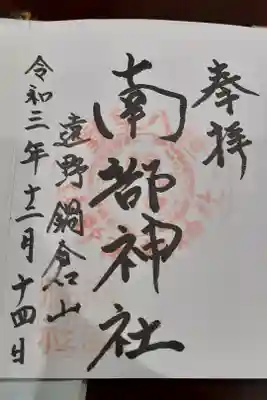 奉拝
南部神社
遠野鍋倉山
令和三年十二月十四日